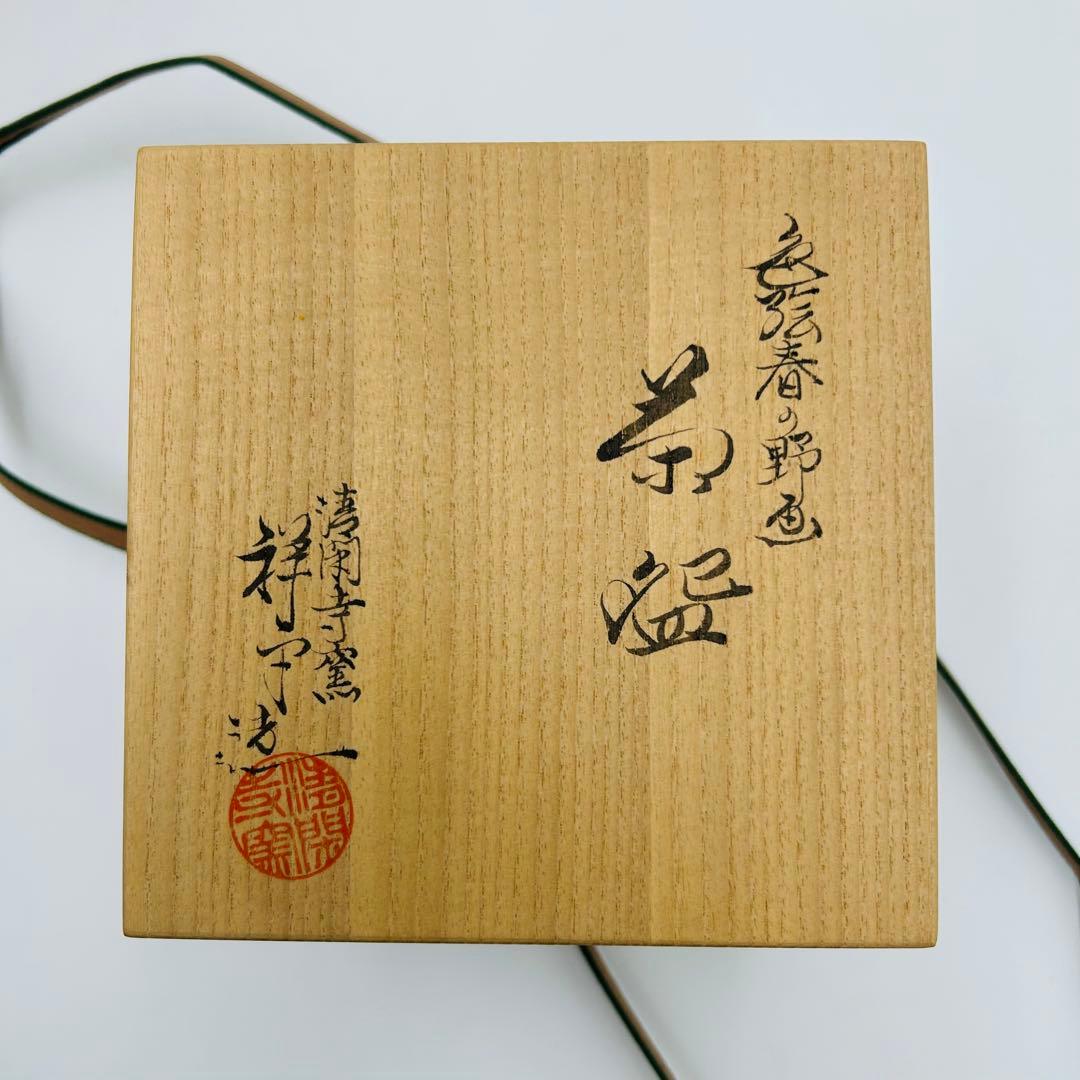 色絵春の野画
茶盌
清閑寺窯
祥平造
清閑寺窯